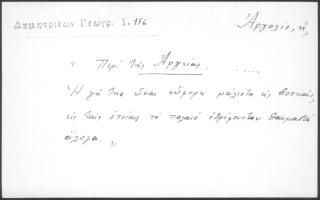 Δημητριεων Γεωγρ. 1, 156
Ἀργολίς, ἡ,
" Περὶ τῆς Ἀργείας. .....
Ἡ γῆ της εἶναι εὔφορη μάλιστα εἰς βοσκαῖς,
εἰς ταῖς ὁποίαις τὸ παλαιὸ ἐθρέφονταν θαυμαστὰ
ἄλογα. „